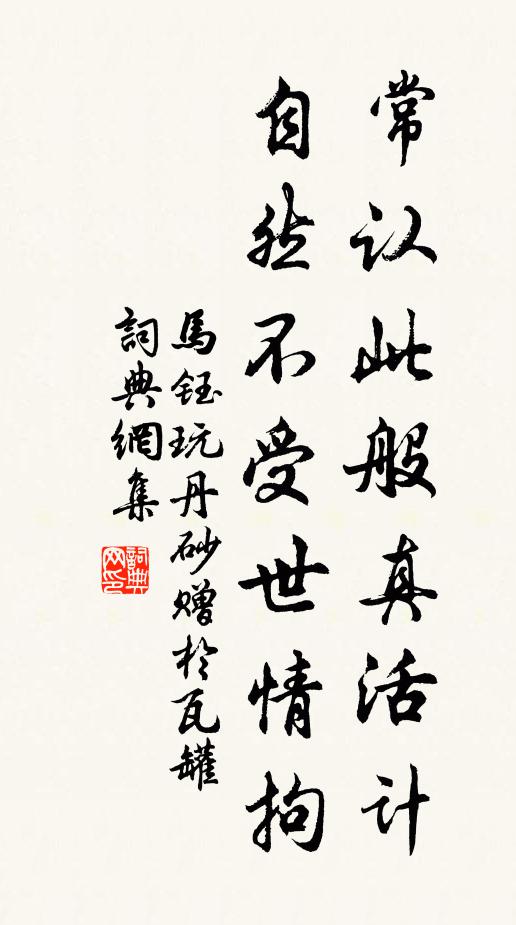 常认此般真活计
自然不受世情拘
馬鈺玩丹砂赠於瓦罐
詞典網集
詞典
网印